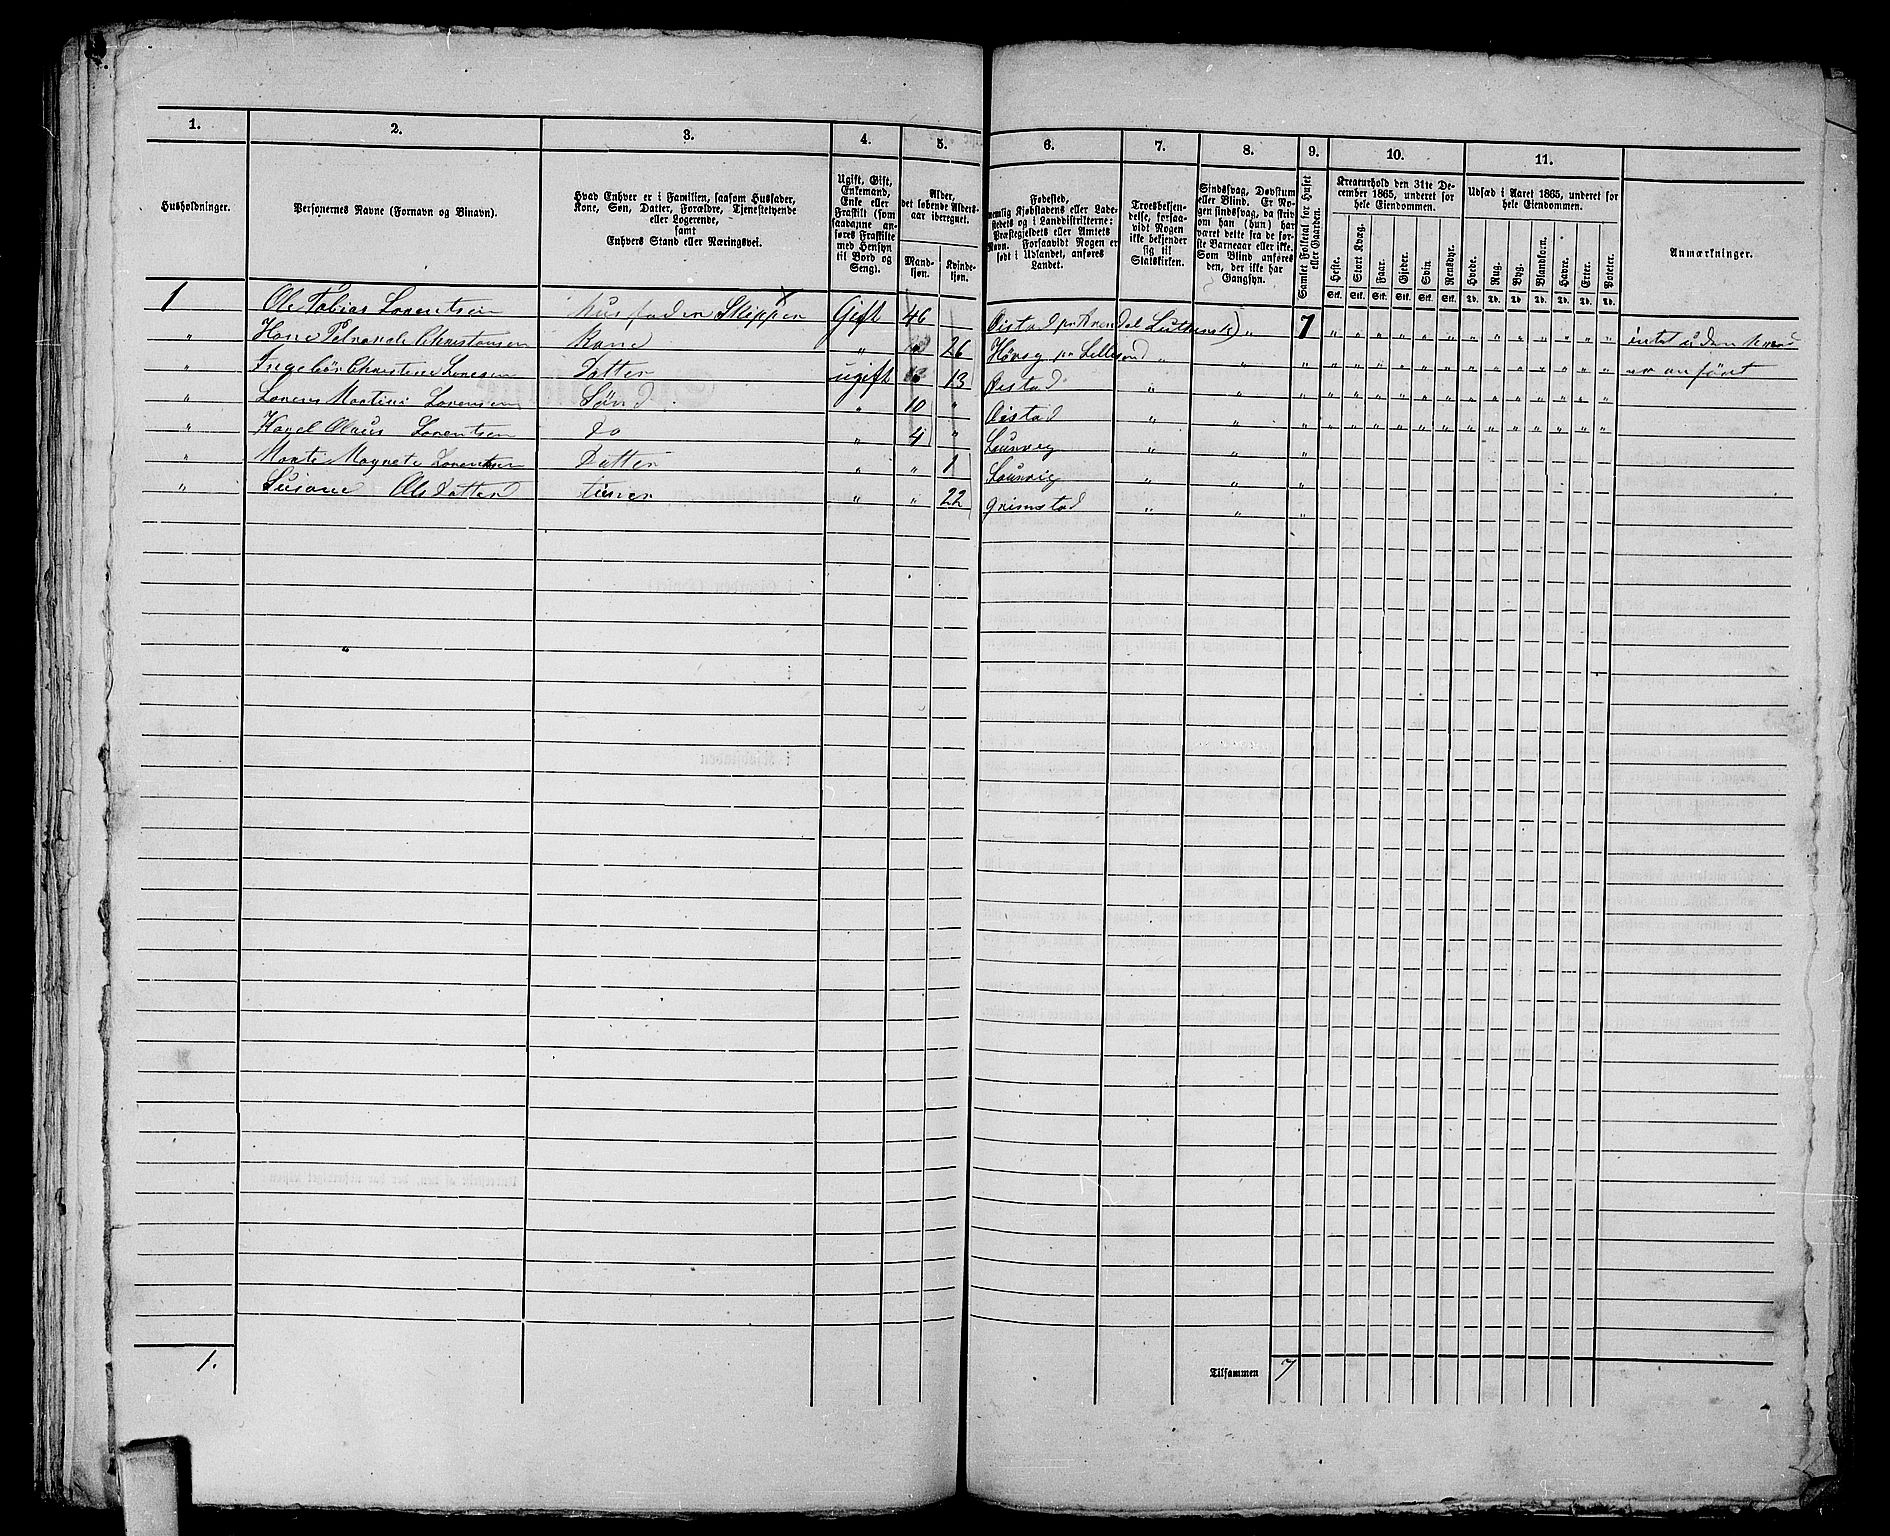 1. 2. 3. 4. 5. 6. 7. 8. 9. 10. 11.
Husholdninger.
Personernes Navne (Fornavn og Binavn).
Hvad Enhver er i Familien, saasom Husfader,
Kone, Søn, Datter, Forældre, Tjenestetyende
eller Logerende,
samt
Enhvers Stand eller Næringsvei.
Ugift, Gift,
Enkemand,
Enke eller
Fraskilt (som
saadanne an-
føres Fraskilte
med Hensyn
til Bord og
Seng).
Alder,
det løbende Alders-
aar iberegnet.
Mand-
kjøn.
Kvinde-
kjøn.
Fødested,
nemlig Kjøbstadens eller Lade-
stedets og i Landdistrikterne:
Præstegjeldets eller Amtets
Navn. Forsaavidt Nogen er
født i Udlandet, anføres
Landet.
Troesbekjen-
delse, forsaa-
vidt Nogen
ikke bekjender
sig til
Statskirken.
Sindssvag, Døvstum
eller Blind. Er No-
gen sindssvag, da skriv
om han (hun) har
været dette fra de før-
ste Barneaar eller ikke.
Som Blind anføres
den, der ikke har
Gangsyn.
Samlet Folketal for Huset
eller Gaarden.
Kreaturhold den 31te De-
cember 1865, underet for
hele Eiendommen.
Heste. Stort Kvæg. Faar. Gjeder. Svin Rensdyr.
Stk. Stk. Stk. Stk. Stk. Stk.
Udsæd i Aaret 1865, underet for
hele Eiendommen.
Hvede. Rug. Byg. Blandkorn. Havre. Erter. Poteter.
Td. Td. Td. Td. Td. Td. Td.
Anmærkninger.
1 Ole Tobias Lorentsen Husfader Skipper Gift 46 Øistad pr Arendal Luthersk 7 " " " " " " " " " " " " " intet uden hvad
" Hane Petronale Christansen Kone " 26 Høvåg pr Lillesand " " " " " " " " " " " " " " er anført
" Ingebör Christene Lorensen Datter ugift 13 Øistad " " " " " " " " " " " " " " "
" Lorens Martini Lorensen Sönd " 10 " Øistad " " " " " " " " " " " " " " "
" Karel Olaus Lorentsen do " 4 " Laurvig " " "
" Marte Magrete Lorentsen Datter " " 1 Laurvig " " "
" Susane Olsdatter tiener " " 22 Grimstad " " "
1.
Tilsammen 7